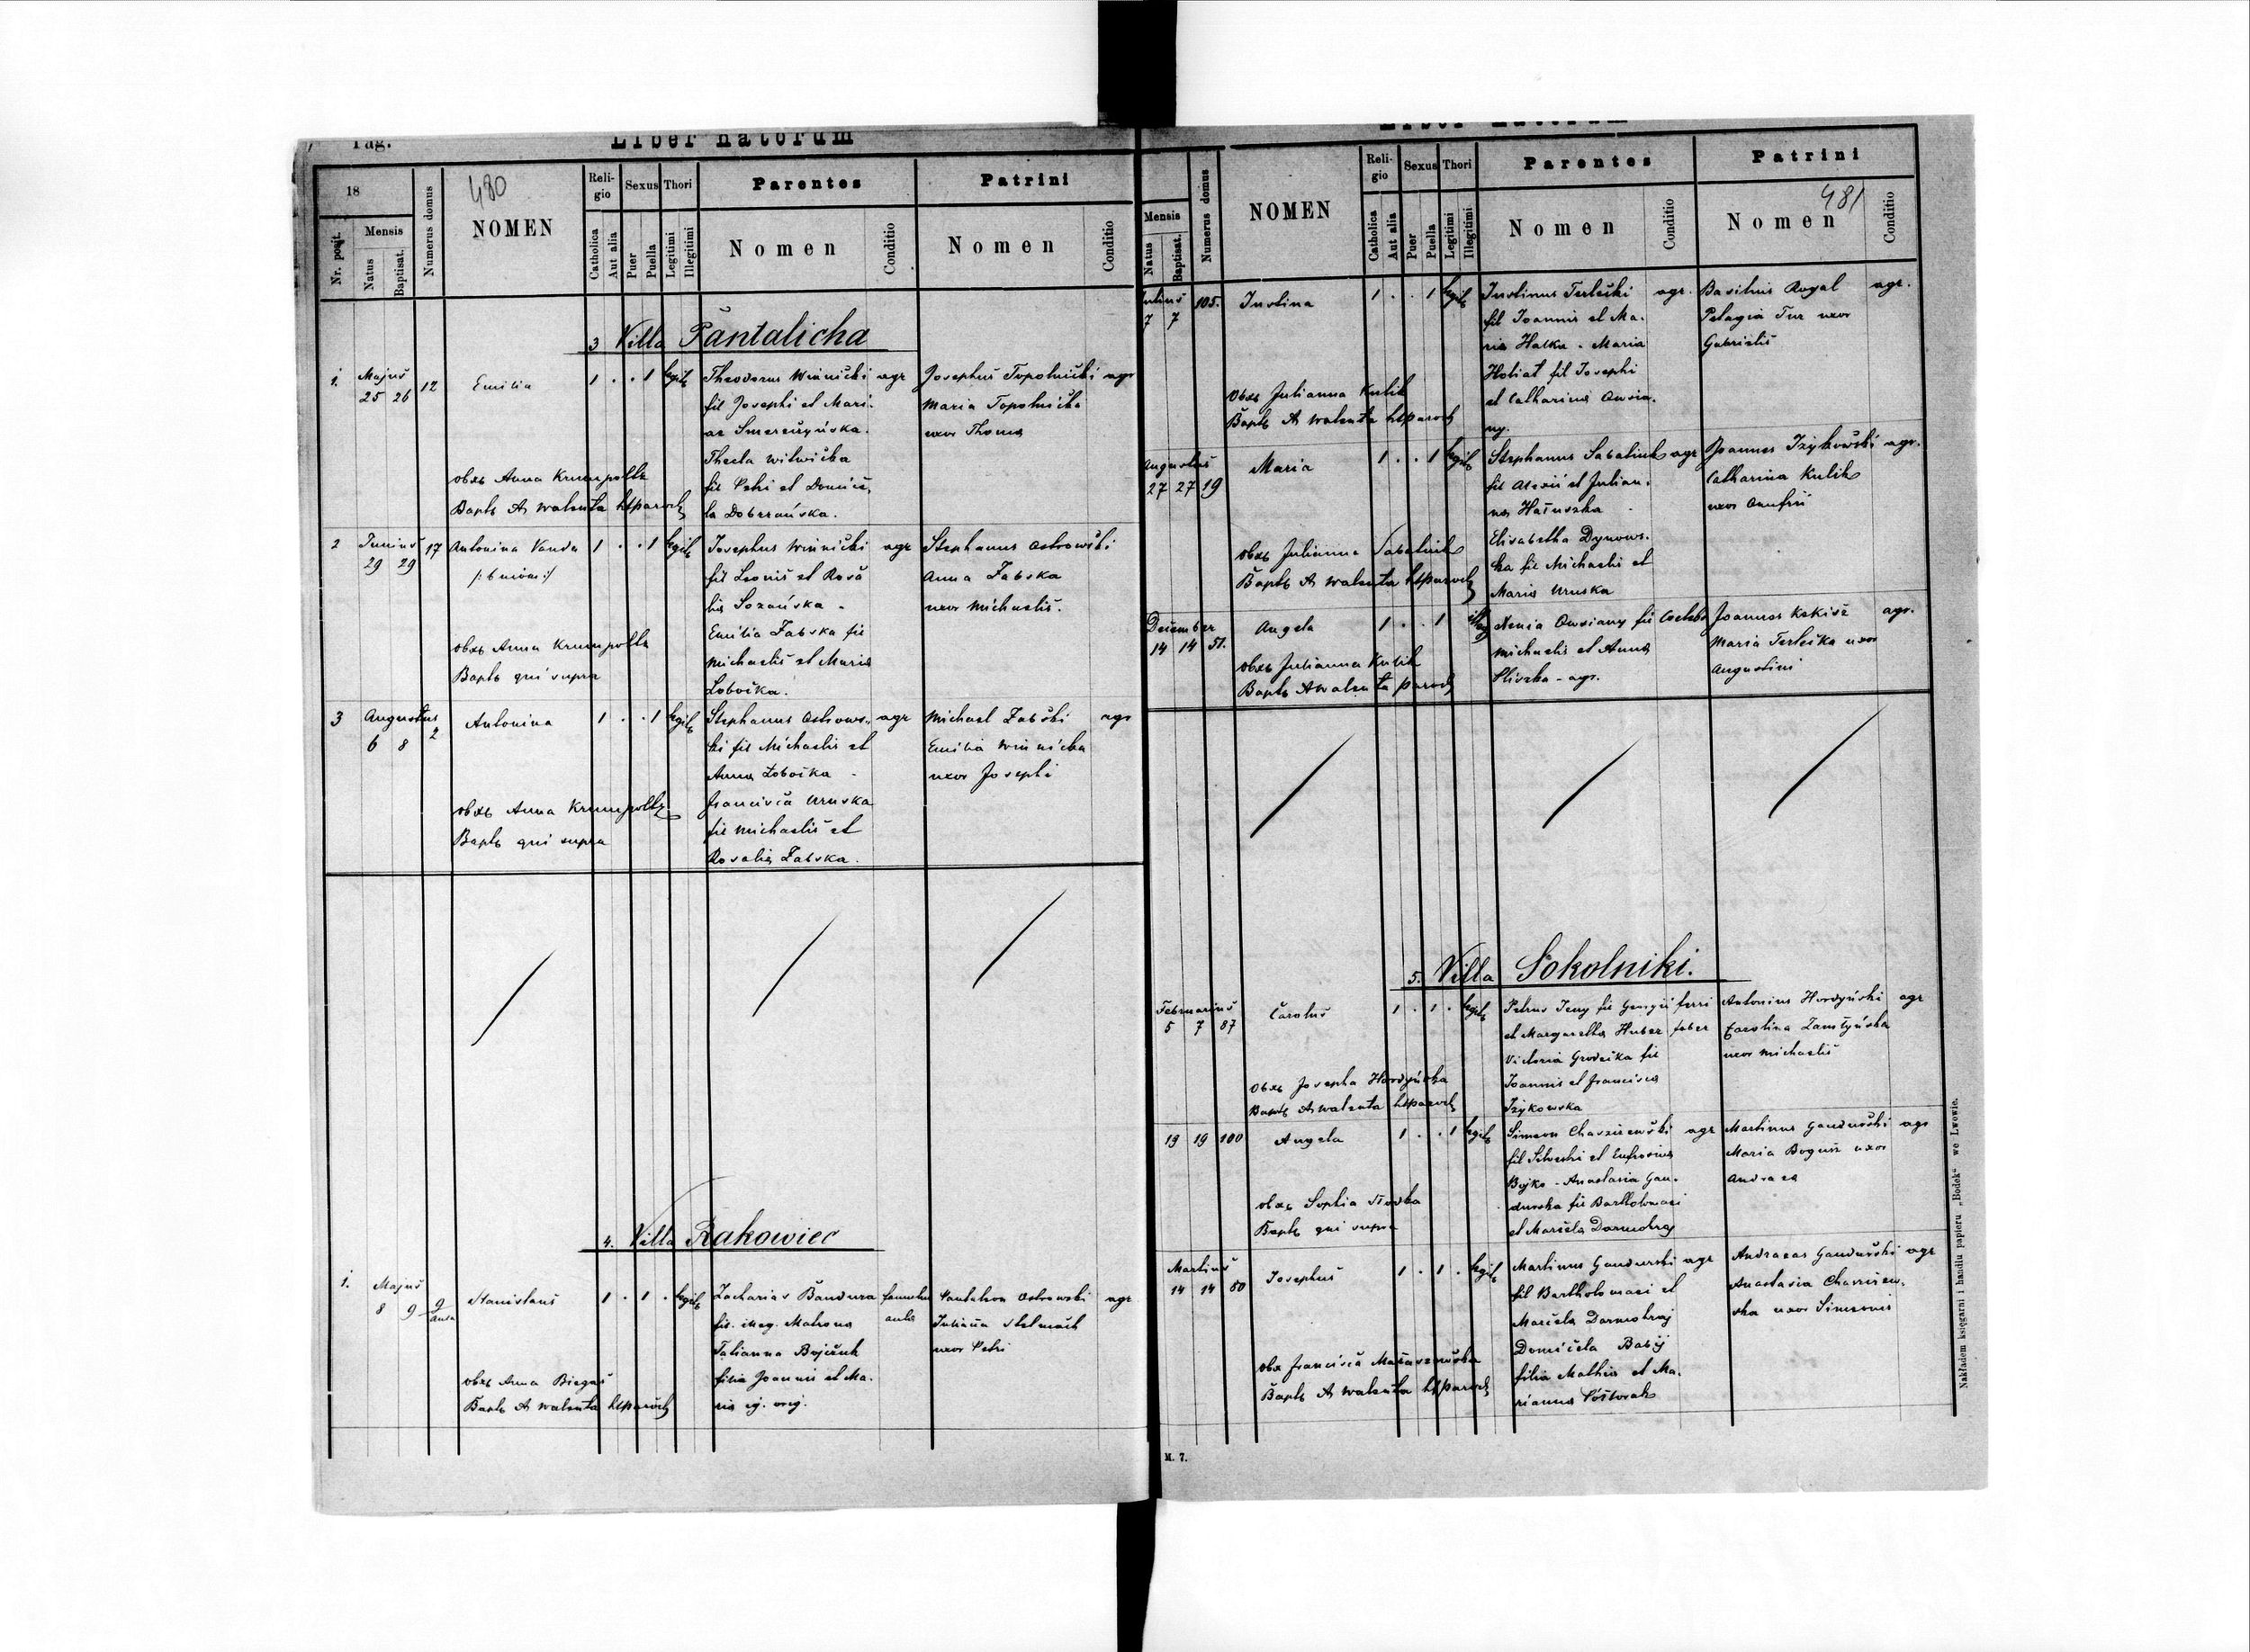 Pag.
Liber natorum
480
18
Nr. posit.
Mensis
Natus
Baptisat.
Numerus domus
NOMEN
Reli-
gio
Catholica
Aut alia
Sexus
Puer
Puella
Thori
Legitimi
Illegitimi
Parentes
Nomen
Conditio
Patrini
Nomen
Conditio
3 Villa Pantalicha
1. Majus 25 26 12 Emilia 1 . . 1 legit Theodorus Winnicki agr Josephus Topolnicki agr
fil Josephi et Mari-
Maria Topolnicka
ae Smereczyńska.
uxor Thoma
Thecla Witwicka
obst Anna Krumpoltz
fil Petri et Domice,
Bapt A Walenta
la Doberańska.
2 Junius 29 29 17 Antonina Vanda 1 . . 1 legit Josephus Winnicki agr Stephanus Ostrowski
/: b nom :/
fil Leonis et Rosa
Anna Żabska
lia Sozańska -
uxor Michaelis.
Emilia Żabska fil
obst Anna Krumpoltz
Michaelis et Maria
Bapt qui supra
Łobocka.
3 Augustus 6 8 2 Antonina 1 . . 1 legit Stephanus Ostrows- agr Michael Żabski agr
ki fil Michaelis et
Emilia Winnicka
Anna Łobocka -
uxor Josephi
obst Anna Krumpoltz
Francisca Uruska
fil Michaelis et
Bapt qui supra
Rosalia Żabska.
4. Villa Rakowiec
1. Majus 8 9 9 Stanislaus 1 . 1 . legit Zacharias Bandura famulus Pantaleon Ostrowski agr
fil. illeg. Matrona
Juliana Stelmach
Tatianna Bojczuk
uxor Petri
filia Joannis et Ma-
obst Anna Biegus
ria ig. orig.
Bapt A Walenta
Liber natorum
481
Mensis
Natus
Baptisat.
Numerus domus
NOMEN
Reli-
gio
Catholica
Aut alia
Sexus
Puer
Puella
Thori
Legitimi
Illegitimi
Parentes
Nomen
Conditio
Patrini
Nomen
Conditio
Julius 7 7 105. Justina 1 . . 1 legit Justinus Terlecki agr. Basilius Rogal agr.
fil Joannis et Ma-
Pelagia Tur uxor
ria Halka - Maria
Gabrielis
Holiat fil Josephi
obst Julianna Kulik
et Catharina Owsia-
Bapt A Walenta
ny.
Augustus 27 27 19 Maria 1 . . 1 legit Stephanus Sabatiuk agr Joannes Izykowski agr.
fil Alexii et Julian-
Catharina Kulik
na Hałuszka
uxor Onufrii
obst Julianna Sabatiuk
Elisabetha Dynows-
ka fil Michaelis et
Bapt A Walenta
Maria Uruska
December 14 14 51. Angela 1 . . 1 illeg Xenia Owsiany fil Joannes Kekisz agr.
Michaelis et Anna
Maria Terlecka uxor
obst Julianna Kulik
Pliszka - agr.
Augustini
Bapt A Walenta paroch
5. Villa Sokolniki.
Februarius 5 7 87 Carolus 1 . 1 . legit Petrus Jeny fil Georgii ferri Antonius Hordyński agr
et Margaretha Huber faber
Carolina Zamłyńska
Victoria Grodzicka fil
uxor Michaelis
Joannis et Francisca
obst Josepha Hordyńska
Izykowska
Bapt A Walenta
19 19 100 Angela 1 . . 1 legit Simeon Charszewski agr Martinus Gandurski agr
fil Silvestri et Eufrosina
Maria Bogusz uxor
Bojko - Anastasia Gan-
Andrea
obst Sophia
durska fil Bartholomaei
Bapt qui supra
et Marcela Darmohraj
Martius 14 14 80 Josephus 1 . 1 . legit Martinus Gandurski agr Andraeas Gandurski agr
fil Bartholomaei et
Marcela Darmohraj
uxor Simeonis
Domicela Babij
filia Mathia et Ma-
Bapt A Walenta
rianna
M. 7.
Nakładem księgarni i handlu papieru „Bodek“ we Lwowie.